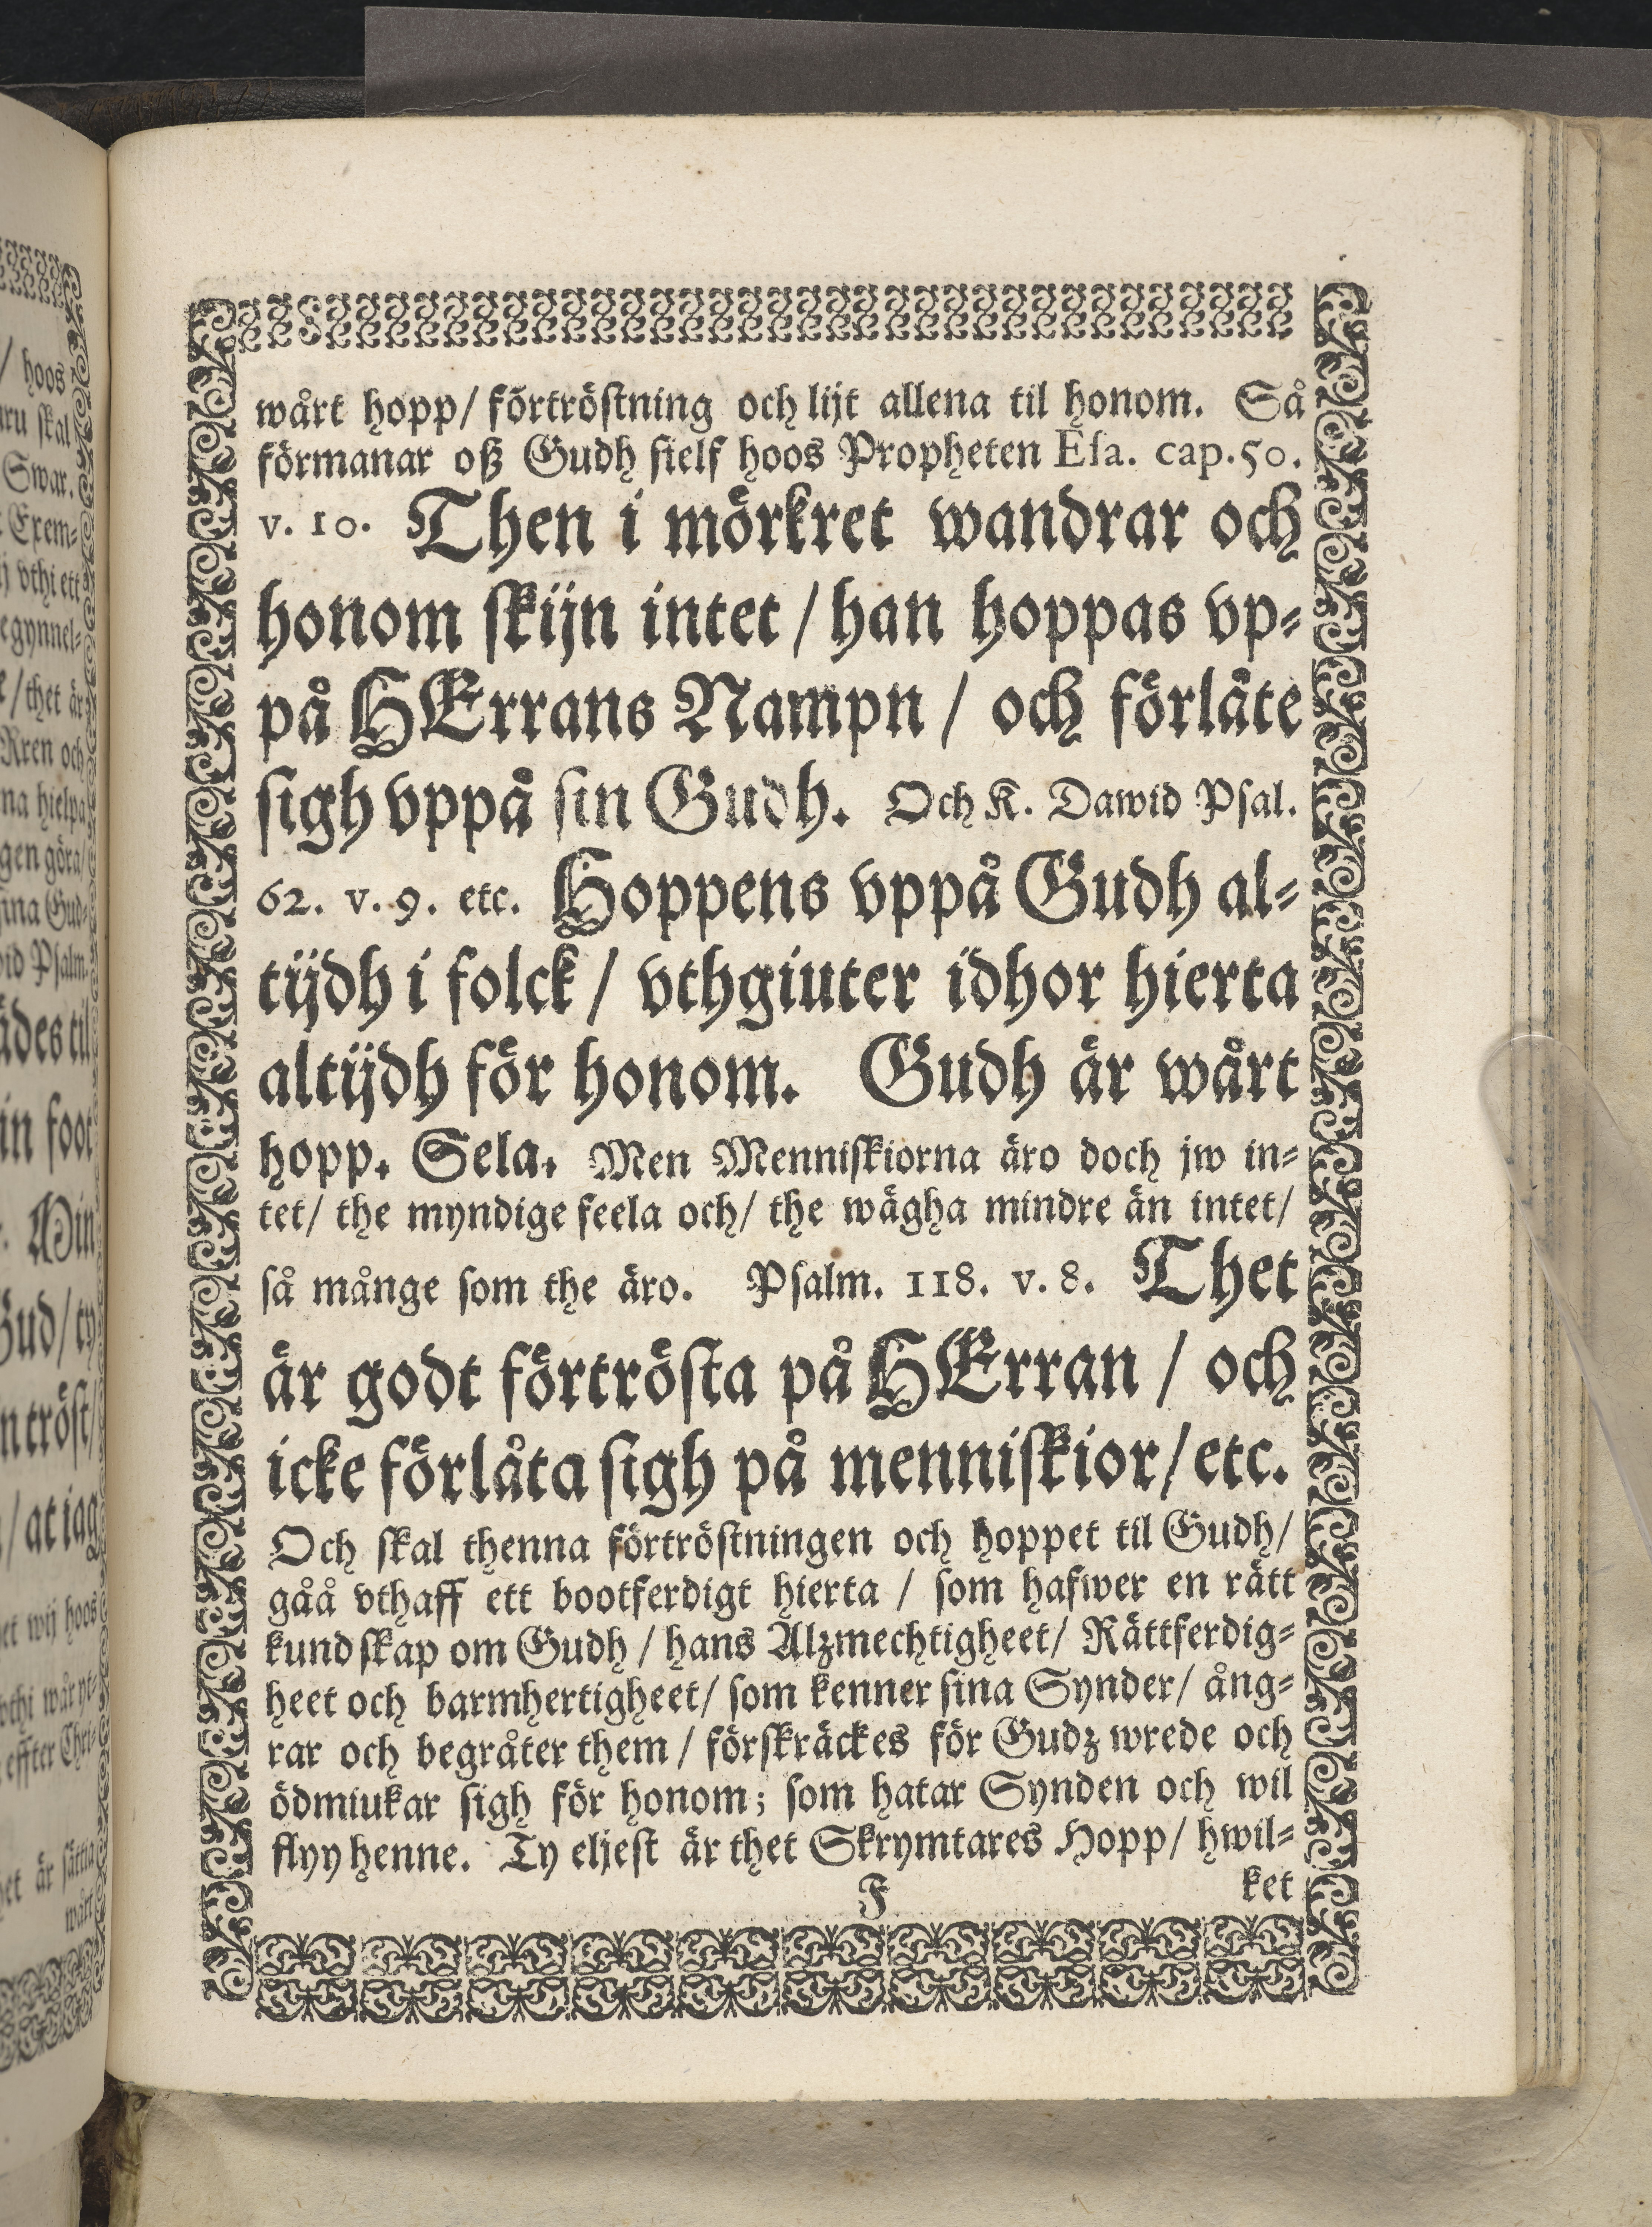 wårt hopp/ förtröstning och lijt allena til honom. Så
förmanar oß Gudh sielf hoos Propheten Esa. cap. 50.
v. 10. Then i mörkret wandrar och
honom skijn intet / han hoppas vp-
på HErrans Nampn / och förlåte
sigh vppå sin Gudh. Och K. Dawid Psal.
62. v. 9. etc. Hoppens vppå Gudh al-
tijdh i folck / vthgiuter idhor hierta
altijdh för honom. Gudh är wårt
hopp. Sela. Men Menniskiorna äro doch jw in-
tet/ the myndige feela och/ the wägha mindre än intet/
så månge som the äro. Psalm. 118. v. 8. Thet
är godt förtrösta på HErran / och
icke förlåta sigh på menniskior/ etc.
Och skal thenna förtröstningen och hoppet til Gudh/
gåå vthaff ett bootferdigt hierta / som hafwer en rätt
kundskap om Gudh / hans Alzmechtigheet/ Rättferdig-
heet och barmhertigheet/ som kenner sina Synder/ ång-
rar och begråter them / förskräckes för Gudz wrede och
ödmiukar sigh för honom; som hatar Synden och wil
flyy henne. Ty eljest är thet Skrymtares Hopp/ hwil-
J ket